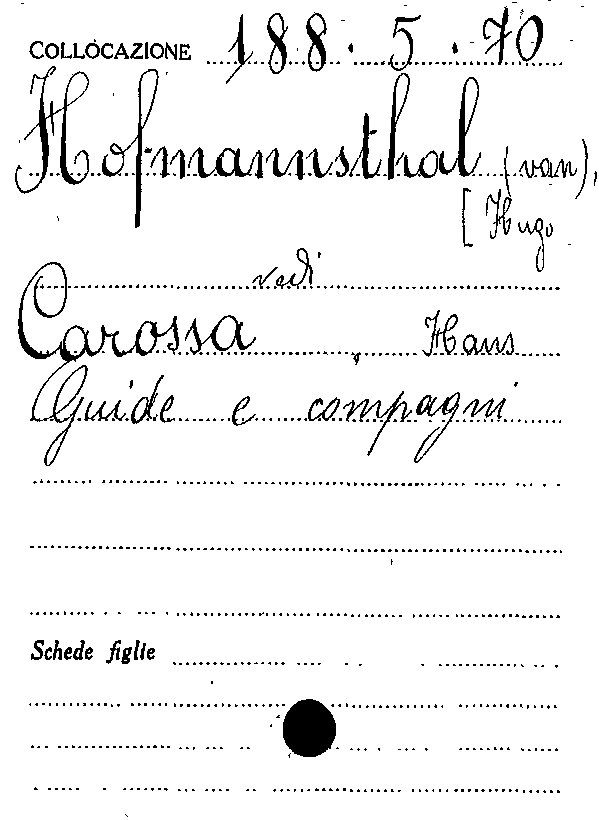 COLLOCAZIONE 188.5.70
Hofmannsthal (van),
[Hugo
vedi
Carossa, Hans
Guide e compagni
Schede figlie